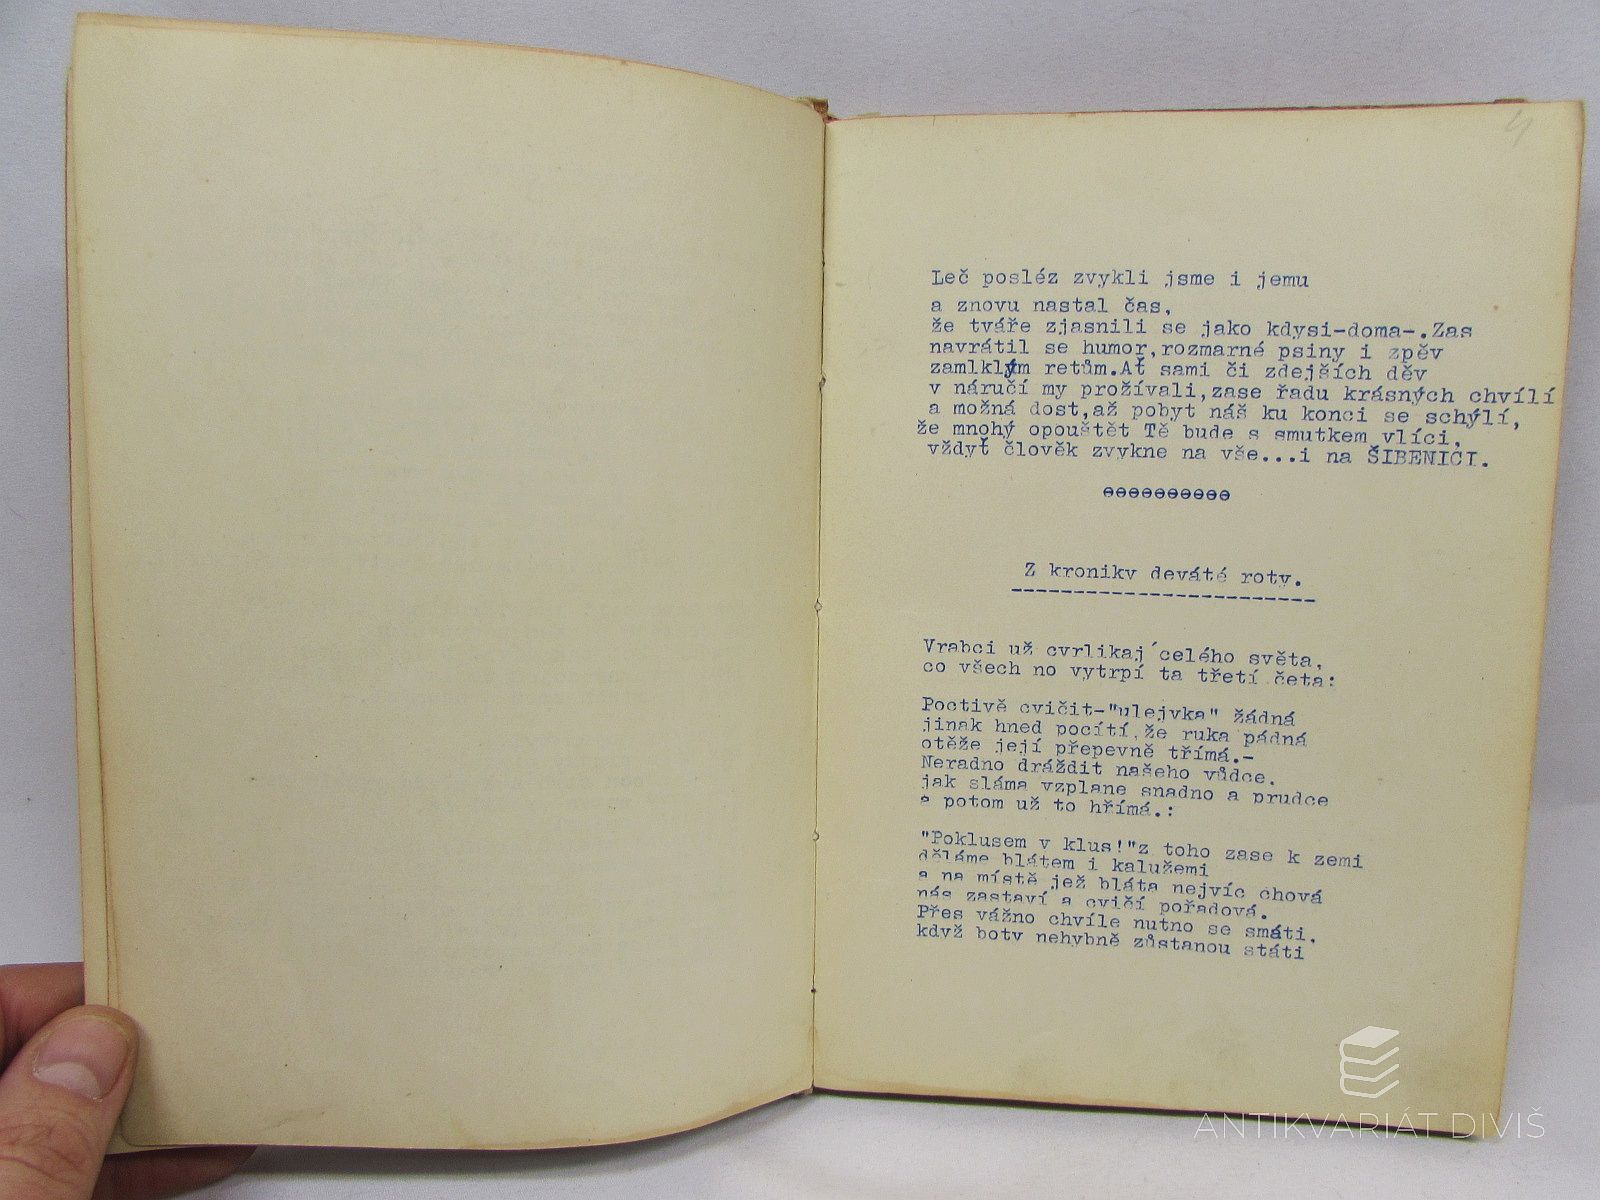 4
Leč posléz zvykli jsme i jemu
a znovu nastal čas,
že tváře zjasnili se jako kdysi-doma-.Zas
navrátil se humor,rozmarné psiny i zpěv
zamlklým retům.Ať sami či zdejších děv
v náručí my prožívali,zase řadu krásných chvílí
a možná dost,až pobyt náš ku konci se schýlí,
že mnohý opouštět Tě bude s smutkem vlíci,
vždyť člověk zvykne na vše...i na ŠIBENICI.
θθθθθθθθθθ
Z kroniky deváté roty.
------------------------
Vrabci už cvrlikaj´celého světa,
co všech no vytrpí ta třetí četa:
Poctivě cvičit-"ulejvka" žádná
jinak hned pocítí,že ruka pádná
otěže její přepevně třímá.-
Neradno dráždit našeho vůdce,
jak sláma vzplane snadno a prudce
a potom už to hřímá.:
"Poklusem v klus!"z toho zase k zemi
děláme blátem i kalužemi
a na místě jež bláta nejvíc chová
nás zastaví a cvičí pořadová.
Přes vážno chvíle nutno se smáti,
když boty nehybně zůstanou státi
ANTIKVARIÁT DIVIŠ